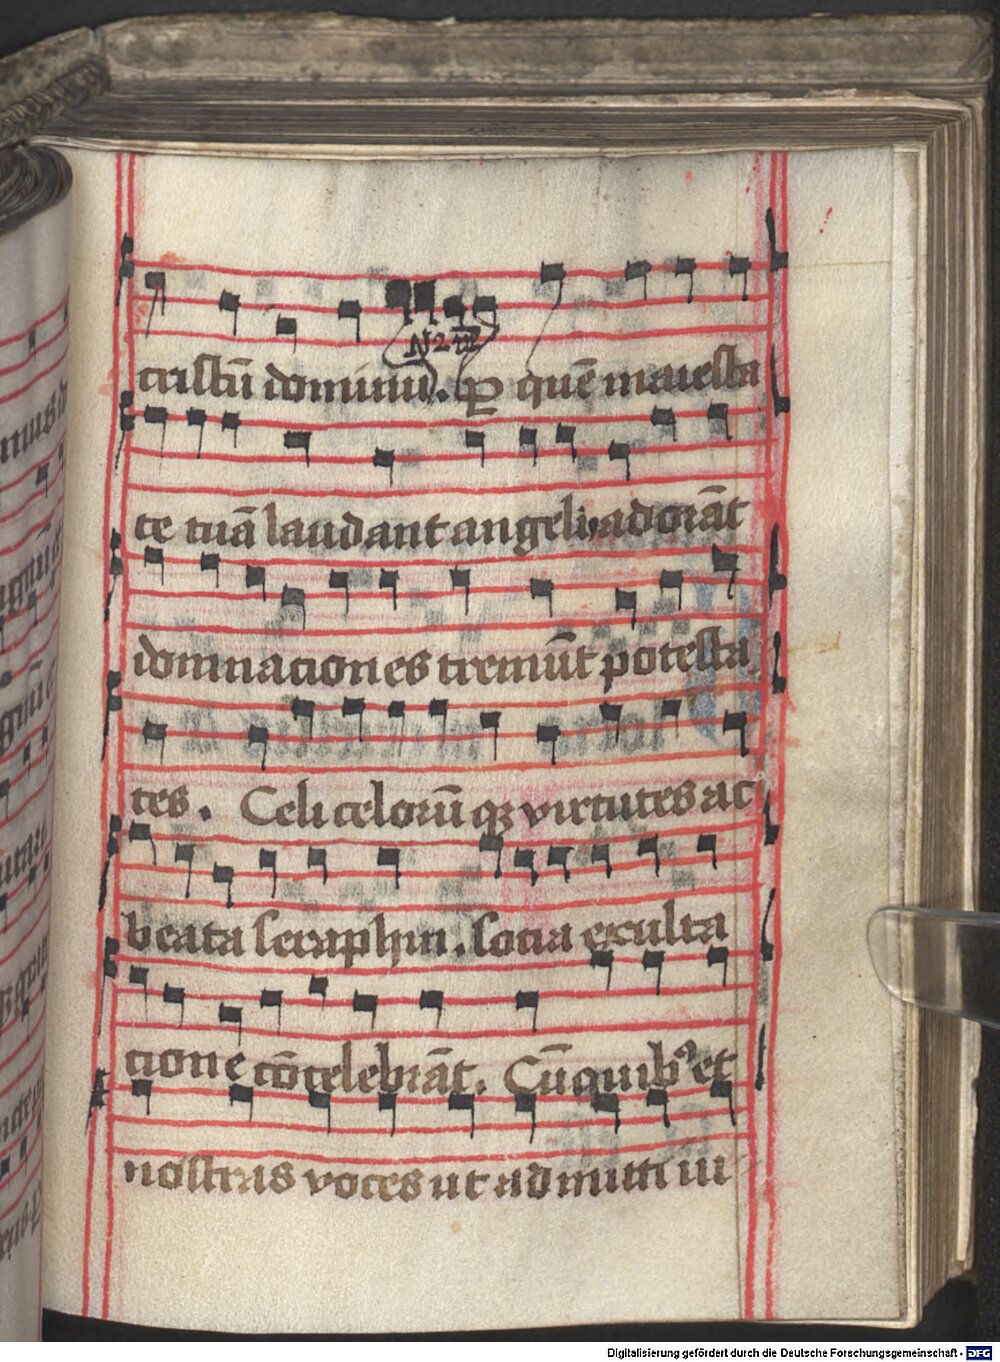 cristū dominū. p̲ quē maiesta
te tuā laudant angeli adorāt
domnaciones tremūt potesta
tes. Celi celorū qꝫ virtutes ac
beata seraphin. socia exulta
cione cōcelebrāt. Cū quibꝰ et
nostras voces ut admitti iu
Digitalisierung gefördert durch die Deutsche Forschungsgemeinschaft - DFG